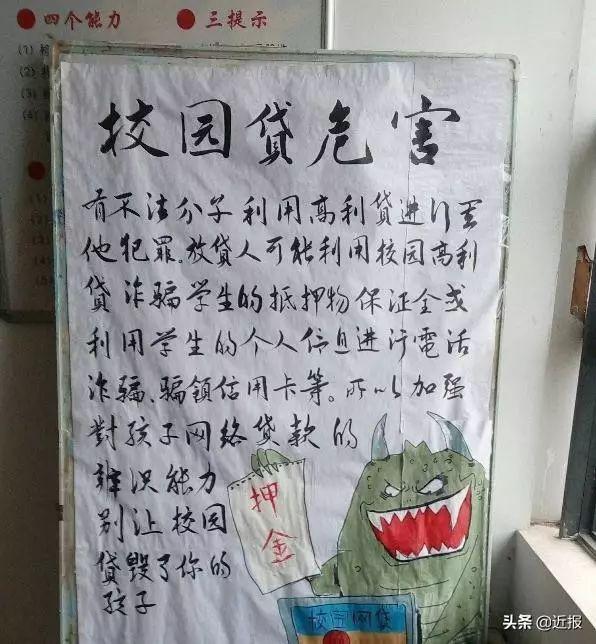 四个能力
三提示
(1)
(2)
校园贷危害
有不法分子利用高利贷进行其
他犯罪。放贷人可能利用校园高利
贷诈骗学生的抵押物保证金或
利用学生的个人信息进行電话
诈骗、骗鎖信用卡等。所以加强
對孩子网络贷款的
辨识能力
别让校园
贷毁了你的
孩子
押
金
校园网贷
头条 @近报